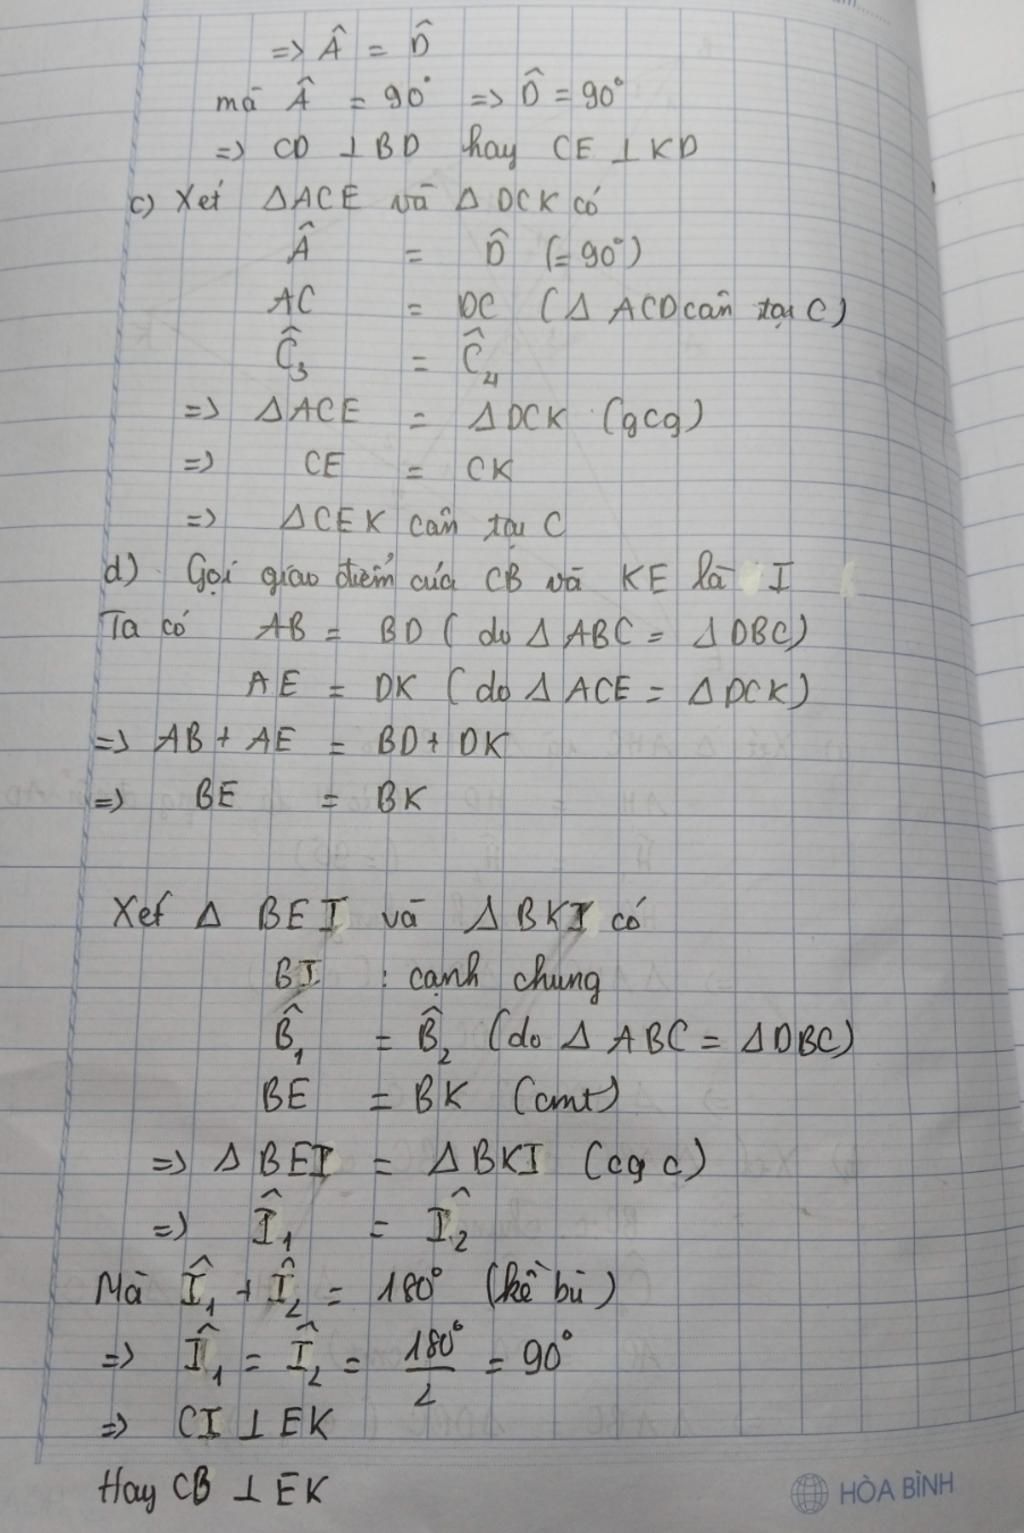 => Â = D̂
mà Â = 90° => D̂ = 90°
=> CD ⊥ BD hay CE ⊥ KD
c) Xét ΔACE và Δ DCK có
Â = D̂ (= 90°)
AC = DC (Δ ACD cân tại C)
Ĉ₃ = Ĉ₄
=> ΔACE = ΔDCK (gcg)
=> CE = CK
=> ΔCEK cân tại C
d) Gọi giao điểm của CB và KE là I
Ta có AB = BD ( do Δ ABC = ΔDBC)
AE = DK ( do Δ ACE = ΔDCK)
=> AB + AE = BD + DK
=> BE = BK
Xét Δ BEI và Δ BKI có
BI : cạnh chung
B̂₁ = B̂₂ (do Δ ABC = ΔDBC)
BE = BK (cmt)
=> Δ BEI = Δ BKI (cgc)
=> Î₁ = Î₂
Mà Î₁ + Î₂ = 180° (kề bù)
=> Î₁ = Î₂ = 180°/2 = 90°
=> CI ⊥ EK
Hay CB ⊥ EK
HÒA BÌNH